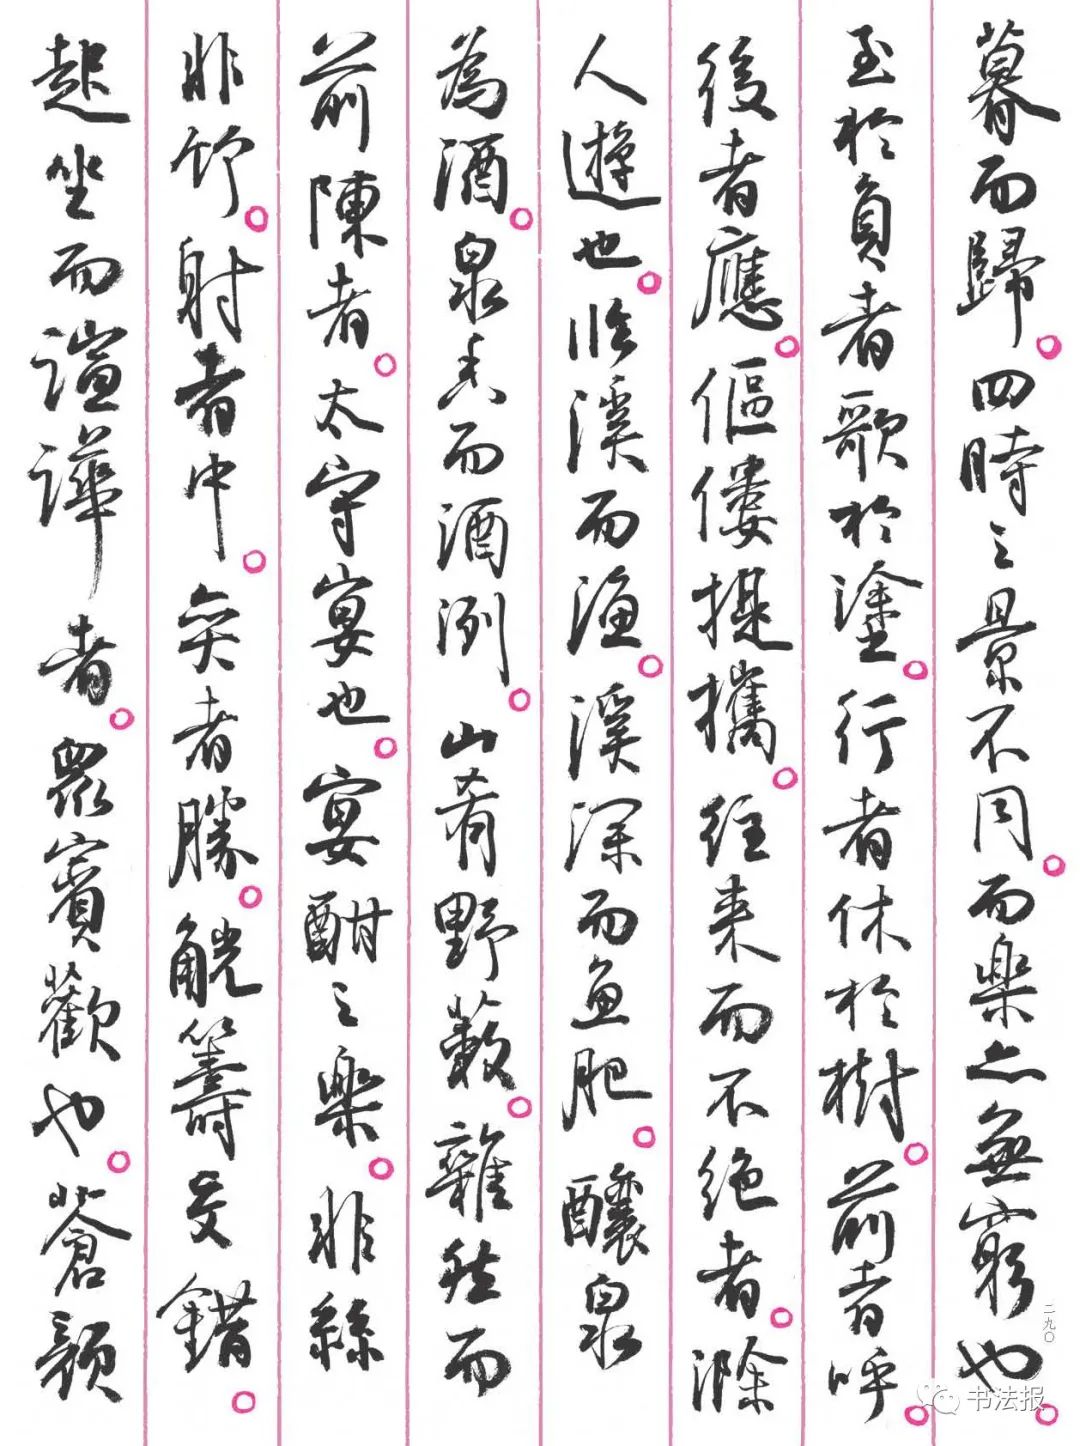 暮而歸。四時之景不同。而樂亦無窮也。
至於負者歌於塗。行者休於樹。前者呼。
後者應。傴僂提攜。往來而不絕者。滁
人遊也。臨溪而漁。溪深而魚肥。釀泉
為酒。泉香而酒洌。山肴野蔌。雜然而
前陳者。太守宴也。宴酣之樂。非絲
非竹。射者中。奕者勝。觥籌交錯。
起坐而諠譁者。眾賓歡也。蒼顏
二九〇
书法报